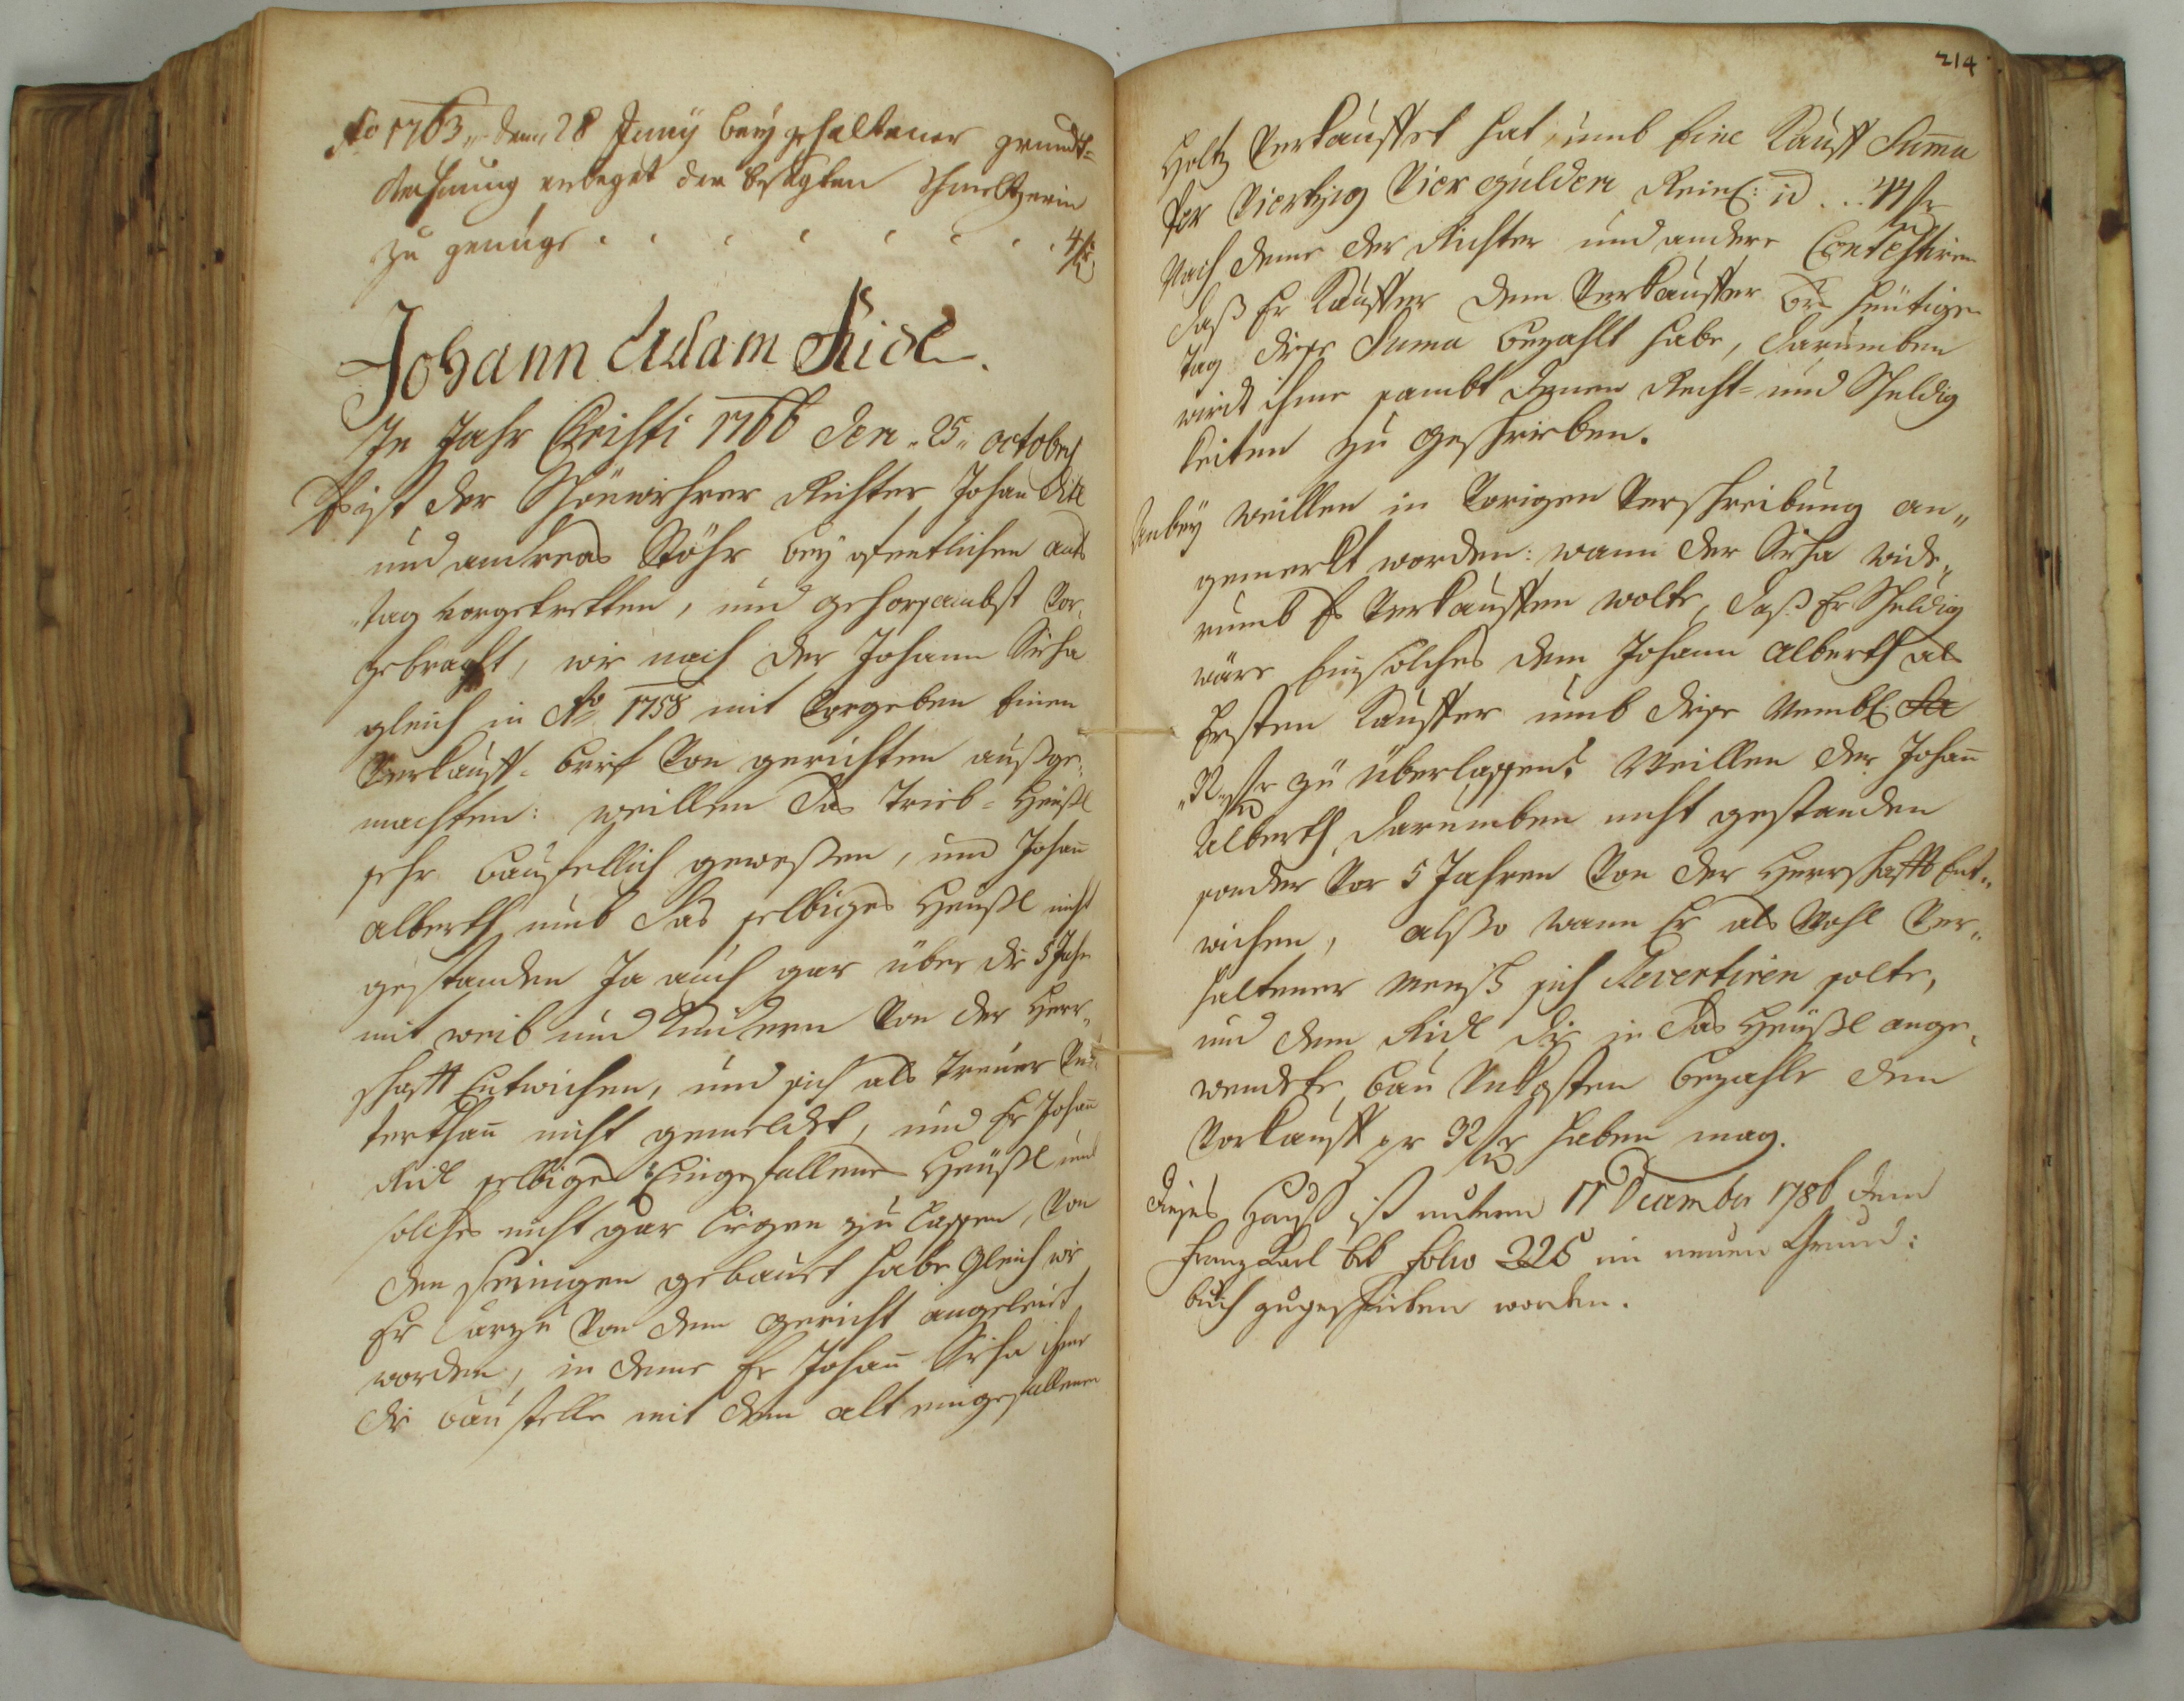 Ao 1763 den 28 Juny bey gehaltener grundt=
Rechnung erleget der besagten Schmeltzerin
zu genüge . . . . . . . 4 fr
Johann Adam Ridl.
Im Jahr Christi 1766 den 25 octobris
Ist der Richter Johan Ridl
und andreas Stöhr bey ofentlichen ambts
tag vorgetretten, und gehorsambst vor
gebracht, wie nach der Johann Sicha
gleich in Ao 1758 mit vorgeben einen
Verkauff= brief von gerichten außge,
machten: weillen das Trieb= Heüßl
sehr baufellich geweßen, und Johan̄
alberth umb das selbiges Heußl nicht
gestanden Ja auch gar über die 5 Jahr
mit weib und Kindern von der Herr,
schafft Entwichen, und sich als treuer Un
terthan̄ nicht gemeldet, und Er Johan̄
Ridl selbiges Eingefallene Heüßl umb
solches nicht gar liegen zu lassen, von
den seinigen gebauet habe gleich wie
Er darzu von dem gericht
worden, in deme Er Johan̄ Sicha ihme
die baustelle mit dem alt eingefallenen
214
Holtz verkauffet hat, umb Eine Kauff Sum̄a
per Viertzig Vier gulden Reinl: id .. 44 fr
Nach deme der Richter und andere Contestiren
daß Er Kauffer dem Verkauffer bis heutigen
tag diese Suma bezahlt habe, darumben
wird ihme sambt denen Recht= und Schuldig
keiten zu geschrieben.
Anbey weillen in vorigen Verschreibung an,,
gemerkt worden: wann der Sicha wide,,
rumb Es verkauffen wolte, daß Er Schuldig
wäre Ein solches dem Johann Alberth als
Ersten Kauffer umb diese Nembl:
32 fr zu überlassen: Weillen der Johan̄
Alberth darumben nicht gestanden
sonder vor 5 Jahren von der Herrschafft Ent,,
wichen, alßo wann Er als Wohl Ver,,
haltener mensch sich Revertiren solte,
und dem Ridl die in das Heüßl ange,
wendete bau Unkosten bezahle den
Vorkauff pr 32 fr haben mag.
Dieses Hauß ist unterm 17 December 1786 dem
Franz Karl folio 225 im neuen Grund:
buch zugeschrieben worden.